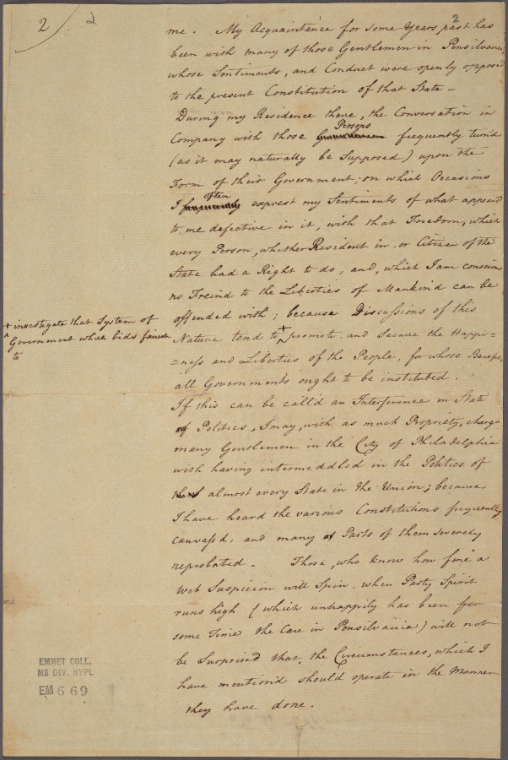 2
2
2
me. My Acquaintance for some years past has
been with many of those Gentlemen in Pensilvania
whose Sentiments, and Conduct were openly opposed
to the present Constitution of that State –
During my Residence there, the Conversation in
Persons
Company with those frequently turn'd
(as it may naturally be Supposed) upon the
Form of their Government; on which Occasions
often
I exprest my Sentiments of what appear'd
to me defective in it, with that Freedom, which
every Person, whether Resident in, or Citizen of the
State had a Right to do, and, which I am conscious
no Freind to the Liberties of Mankind can be
offended with; because Discussions of this
+ investigate that System of
Government which bids fairest
to
Nature tend to + promote, and Secure the Happi=
=ness and Liberties of the People, for whose Benefit,
all Governments ought to be instituted.
If this can be call'd an Interference in State
Politics, I may, with as much Propriety, charge
many Gentlemen in the City of Philadelphia
with having intermeddled in the Politics of
almost every State in the Union; because
I have heard the various Constitutions frequently
canvass'd, and many Parts of them severely
reprobated. Those, who know how fine a
Web Suspicion will Spin, when Party Spirit
runs high (which unhappily has been for
some Time the Case in Pensilvania) will not
be Surprised that, the Circumstances, which I
have mention'd should operate in the Manner
they have done.
EMMET COLL.
MS DIV. NYPL
EM 669